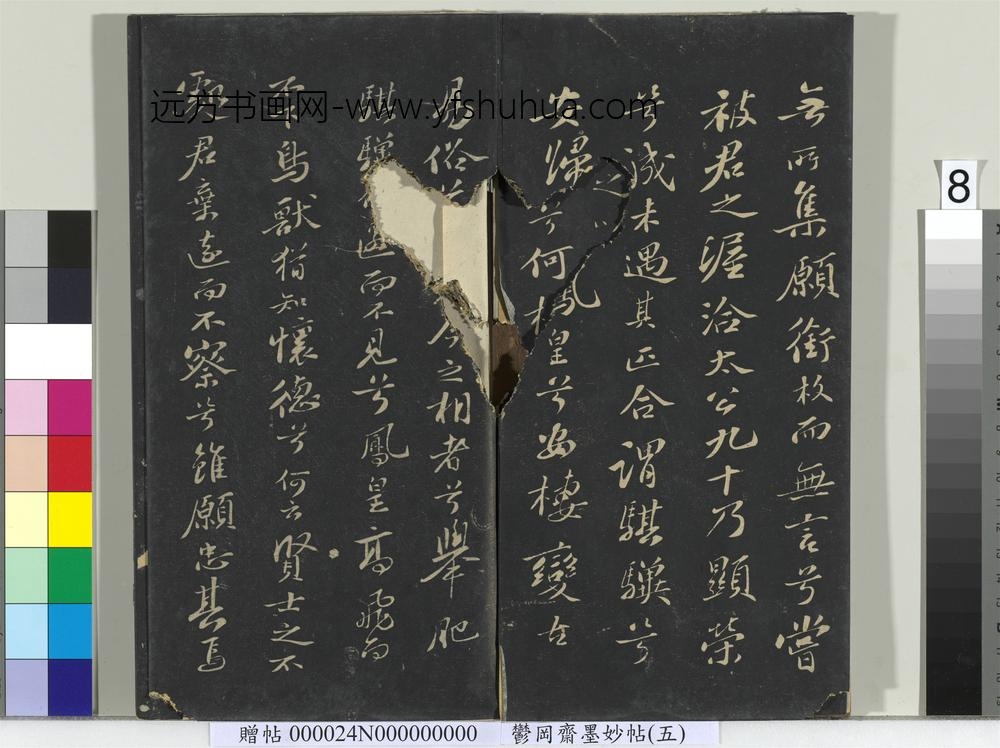 無所集願銜枚而無言兮嘗
被君之渥洽太公九十乃顯榮
兮誠未遇其匹合謂騏驥兮
安歸兮何鳳皇兮安棲變古
易俗兮今之相者兮舉肥
騏驥而不見兮鳳皇高飛而
不鳥獸猶知懷德兮何云賢士之不
處君棄遠而不察兮雖願忠其焉
远方书画网-www.yfshuhua.com
8
贈帖 000024N000000000 鬱岡齋墨妙帖(五)